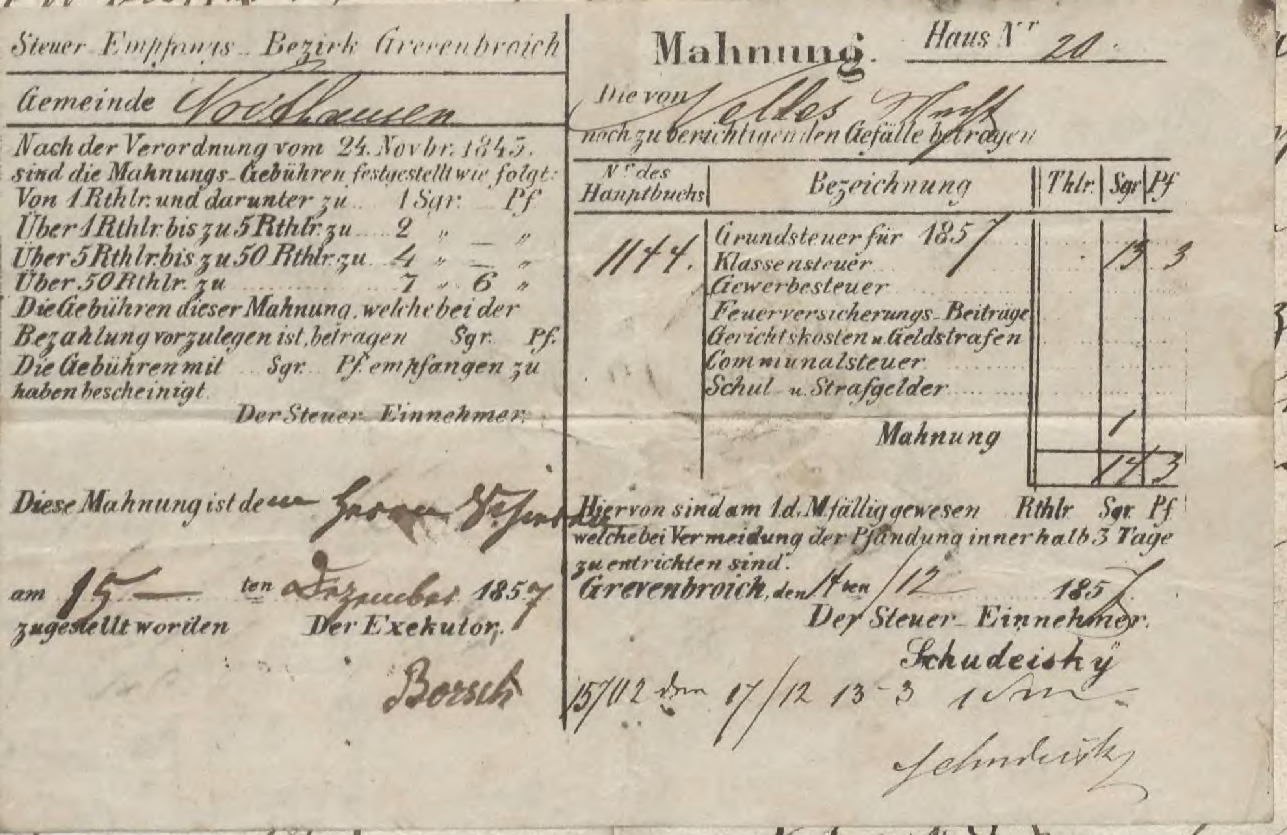 Steuer-Empfangs-Bezirk Grevenbroich
Gemeinde
Nach der Verordnung vom 24. Novbr. 1843.
sind die Mahnungs-Gebühren festgestellt wie folgt:
Von 1 Rthlr. und darunter zu 1 Sgr. _ Pf
Über 1 Rthlr bis zu 5 Rthlr. zu 2 " _ "
Über 5 Rthlr. bis zu 50 Rthlr. zu 4 " _ "
Über 50 Rthlr. zu 7 " 6 "
Die Gebühren dieser Mahnung, welche bei der
Bezahlung vorzulegen ist, betragen Sgr. Pf.
Die Gebühren mit Sgr. Pf. empfangen zu
haben bescheinigt.
Der Steuer-Einnehmer.
Diese Mahnung ist dem Herrn
am 15 ten Dezember 1857
zugestellt worden Der Exekutor,
Borsch
Mahnung. Haus Nr 20
Die von
noch zu berichtigenden Gefälle betragen
Nr des Hauptbuchs Bezeichnung Thlr. Sgr Pf
Grundsteuer für 1857
1144. Klassensteuer 13 3
Gewerbesteuer
Feuerversicherungs-Beiträge
Gerichtskosten u. Geldstrafen
Communalsteuer
Schul- u. Strafgelder
Mahnung 1
14 3
Hiervon sind am 1. d. M fällig gewesen Rthlr Sgr. Pf
welche bei Vermeidung der Pfändung innerhalb 3 Tage
zu entrichten sind.
Grevenbroich, den 14ten /12 1857
Der Steuer-Einnehmer.
Schudeisky
15702 den 17/12 13-3
Schudeisky